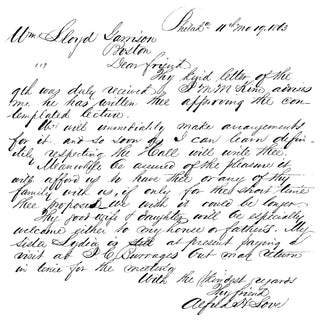 Philad'a 11th Mo 19. 1863
Wm Lloyd Garrison
Boston
Dear friend
Thy kind letter of the
9th was duly received by J M McKim advises
me he has written thee approving the con-
templated lecture.
We will immediately make arrangements
for it, and so soon as I can learn defin-
itely respecting the Hall will write thee.
Meanwhile be assured of the pleasure it
will afford us to have thee or any of thy
family with us, if only for the short time
thee proposes we wish it could be longer.
Thy good wife & daughter will be especially
welcome either to my house or father's. My
sister Lydia is still at present paying a
visit at J C Burrages but may return
in time for the meeting
With the kindest regards
Thy friend
Alfred H Love